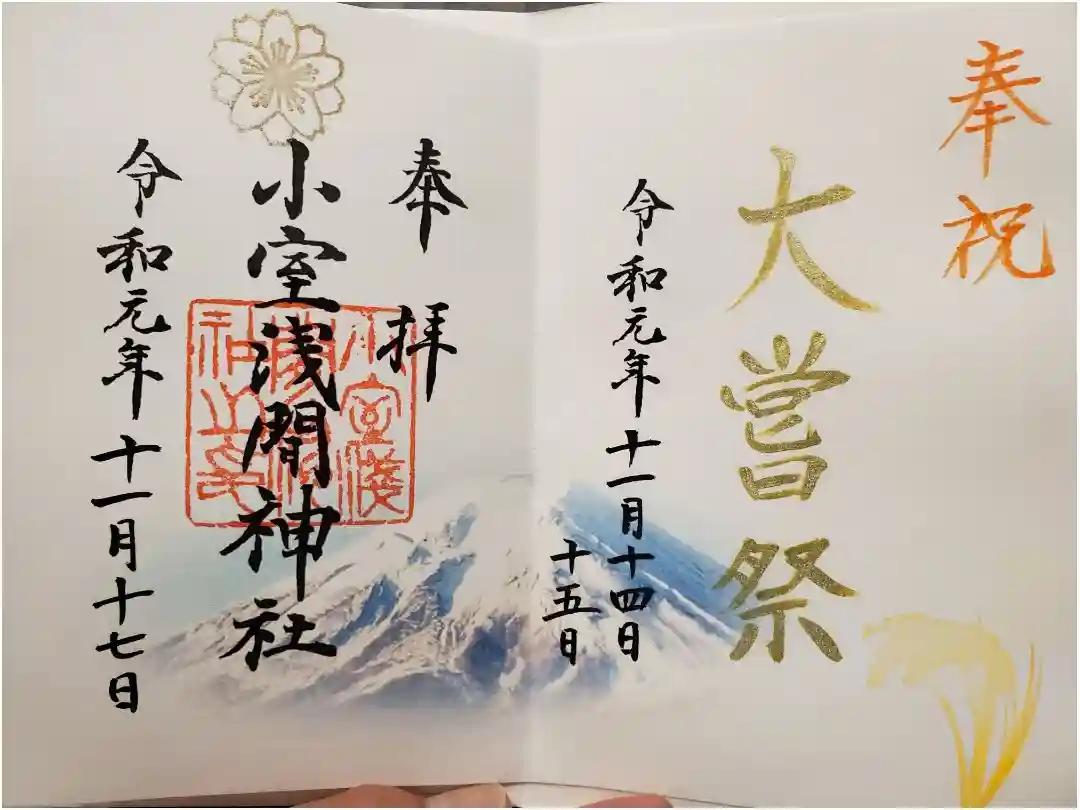 奉祝
大嘗祭
令和元年十一月十四日
十五日
奉拝
小室浅間神社
令和元年十一月十七日